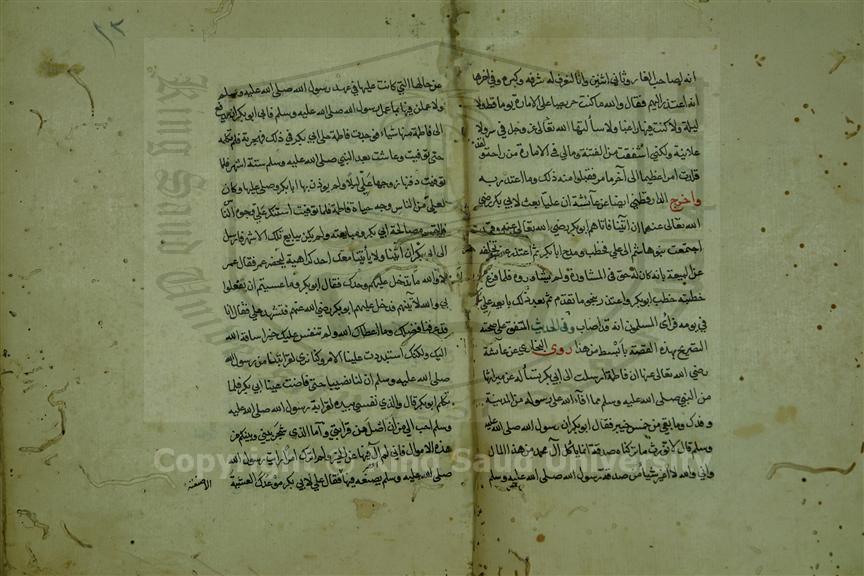 ٨٣
انه لصاحب الغار وثاني اثنين وانا لنعرف له شرفه وكبره وفي اخرها
انه اعتذر اليهم فقال والله ما كنت حريصا على الامارة يوما قط ولا
ليلة ولا كنت فيها راغبا ولا سألتها الله تعالى عز وجل في سر ولا
علانية ولكني اشفقت من الفتنة ومالي في الامارة من راحة ولقد
قلدت امرا عظيما الى آخر ما مر فقبلوا منه ذلك وما اعتذر به
واخرج الدارقطني ايضا عن عائشة ان عليا بعث لابي بكر رضي
الله تعالى عنهم ان ائتنا فاتاهم ابو بكر رضي الله تعالى عنه وقد
اجتمعت بنو هاشم الى علي فخطب ومدح ابا بكر ثم اعتذر عن تخلفه
عن البيعة بانه كان له حق في المشاورة ولم يشاوروه فلما فرغ
خطبته خطب ابو بكر واعتذر بنحو ما تقدم ثم بعد ذلك بايعه علي
في يومه فرأى المسلمين انه قد اصاب وفي الحديث المتفق على صحته
التصريح بهذه القصة بابسط من هذا روى البخاري عن عائشة
رضي الله تعالى عنها ان فاطمة ارسلت الى ابي بكر تسأله عن ميراثها
من النبي صلى الله عليه وسلم مما افاء الله على رسوله من المدينة
وفدك وما بقي من خمس خيبر فقال ابو بكر ان رسول الله صلى الله عليه
وسلم قال لا نورث ما تركناه صدقة انما يأكل آل محمد من هذا المال
واني والله لا اغير شيئا من صدقة رسول الله صلى الله عليه وسلم
من حالها التي كانت عليها في عهد رسول الله صلى الله عليه وسلم
ولا عملن فيها بما عمل رسول الله صلى الله عليه وسلم فابى ابو بكر ان يدفع
الى فاطمة منها شيئا فوجدت فاطمة على ابي بكر في ذلك فهجرته فلم تكلمه
حتى توفيت وعاشت بعد النبي صلى الله عليه وسلم ستة اشهر فلما
توفيت دفنها زوجها علي ليلا ولم يوذن بها ابا بكر وصلى عليها وكان
لعلي من الناس وجه حياة فاطمة فلما توفيت استنكر علي وجوه الناس
فالتمس مصالحة ابي بكر ومبايعته ولم يكن يبايع تلك الاشهر فارسل
الى ابي بكر ان ائتنا ولا يأتينا معك احد كراهية ليحضر عمر فقال عمر
لا والله ما تدخل عليهم وحدك فقال ابو بكر وما عسيتم ان يفعلوا
بي والله لآتينهم فدخل عليهم ابو بكر رضي الله عنهم فتشهد علي فقال انا
قد عرفنا فضلك وما اعطاك الله ولم ننفس عليك خيرا ساقه الله
اليك ولكنك استبددت علينا بالامر وكنا نرى لقرابتنا من رسول الله
صلى الله عليه وسلم ان لنا نصيبا حتى فاضت عينا ابي بكر فلما
تكلم ابو بكر قال والذي نفسي بيده لقرابة رسول الله صلى الله عليه
وسلم احب الي من ان اصل من قرابتي واما الذي شجر بيني وبينكم من
هذه الاموال فاني لم آل فيها عن الخير ولم اترك امرا رأيت رسول الله
صلى الله عليه وسلم يصنعه فيها فقال علي لابي بكر موعدك العشية
King Saud University
Copyright © King Saud University